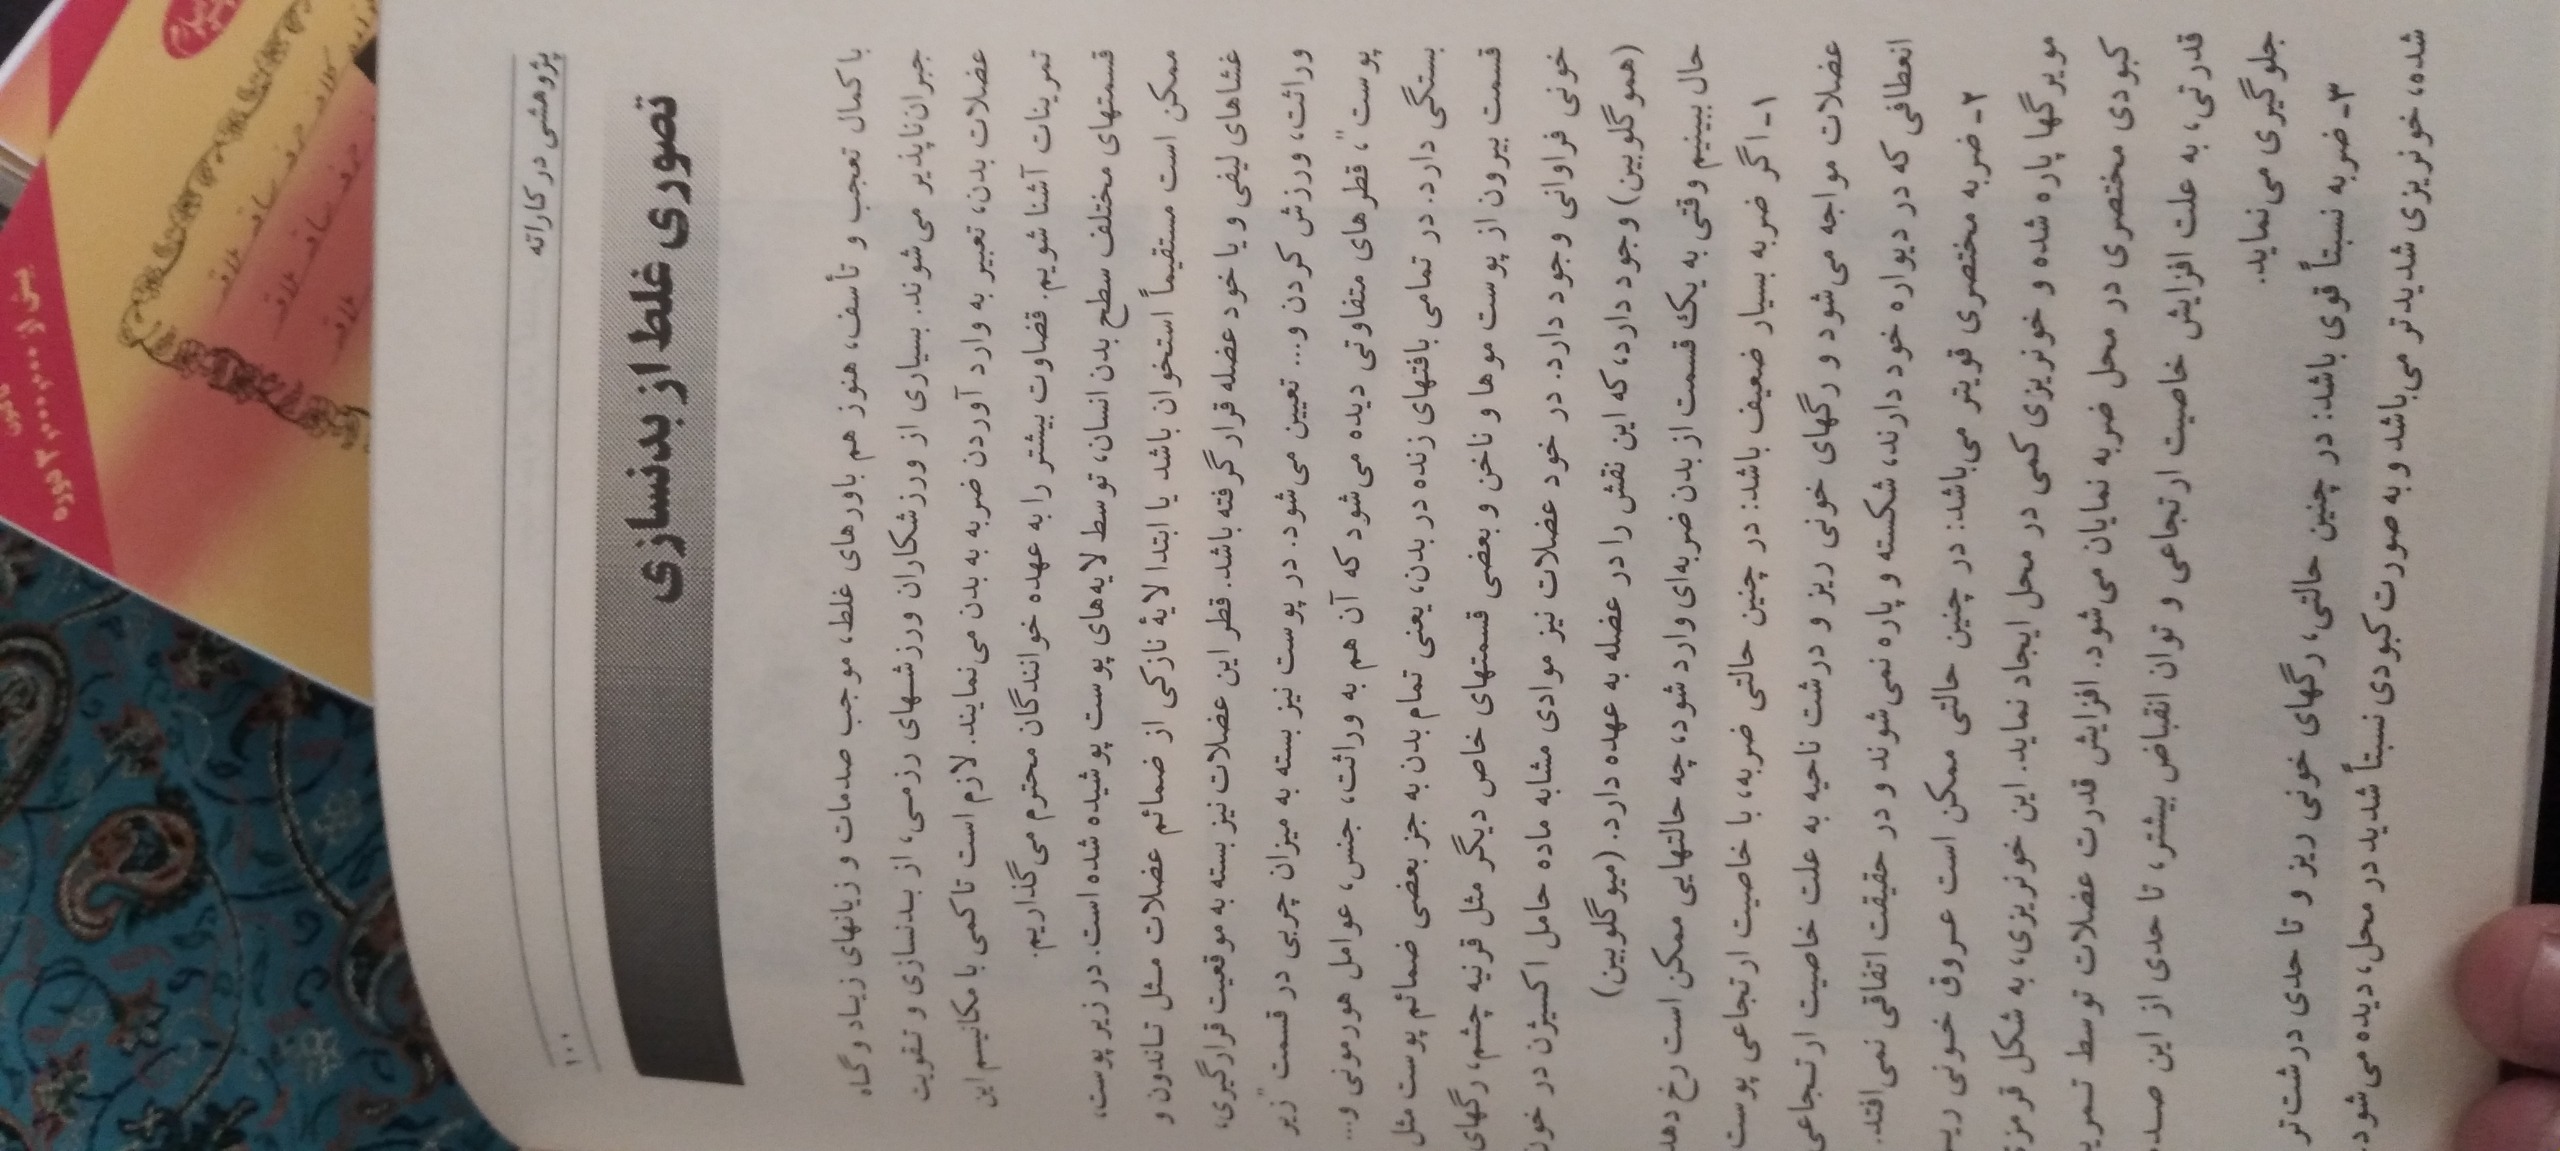 پژوهشی در کاراته
۱۰۰
تصوری غلط از بدنسازی
با کمال تعجب و تأسف، هنوز هم باورهای غلط، موجب صدمات و زیانهای زیاد و گاه
جبران‌ناپذیر می‌شوند. بسیاری از ورزشکاران ورزشهای رزمی، از بدنسازی و تقویت
عضلات بدن، تعبیر به وارد آوردن ضربه به بدن می‌نمایند. لازم است تا کمی با مکانیسم این
تمرینات آشنا شویم. قضاوت بیشتر را به عهده خوانندگان محترم می‌گذاریم.
قسمتهای مختلف سطح بدن انسان، توسط لایه‌های پوست پوشیده شده است. در زیر پوست،
ممکن است مستقیماً استخوان باشد یا ابتدا لایۀ نازکی از ضمائم عضلات مثل تاندون و
غشاهای لیفی و یا خود عضله قرار گرفته باشد. قطر این عضلات نیز بسته به موقعیت قرارگیری،
وراثت، ورزش کردن و... تعیین می‌شود. در پوست نیز بسته به میزان چربی در قسمت "زیر
پوست"، قطرهای متفاوتی دیده می‌شود که آن هم به وراثت، جنس، عوامل هورمونی و...
بستگی دارد. در تمامی بافتهای زنده در بدن، یعنی تمام بدن به جز بعضی ضمائم پوست مثل
قسمت بیرون از پوست موها و ناخن و بعضی قسمتهای خاص دیگر مثل قرنیه چشم، رگهای
خونی فراوانی وجود دارد. در خود عضلات نیز موادی مشابه ماده حامل اکسیژن در خون
(هموگلوبین) وجود دارد، که این نقش را در عضله به عهده دارد. (میوگلوبین)
حال ببینیم وقتی به یک قسمت از بدن ضربه‌ای وارد شود، چه حالتهایی ممکن است رخ دهد
۱- اگر ضربه بسیار ضعیف باشد: در چنین حالتی ضربه، با خاصیت ارتجاعی پوست
عضلات مواجه می‌شود و رگهای خونی ریز و درشت ناحیه به علت خاصیت ارتجاعی
انعطافی که در دیواره خود دارند، شکسته و پاره نمی‌شوند و در حقیقت اتفاقی نمی‌افتد.
۲- ضربه مختصری قویتر می‌باشد: در چنین حالتی ممکن است عروق خونی
مویرگها پاره شده و خونریزی کمی در محل ایجاد نماید. این خونریزی، به شکل
کبودی مختصری در محل ضربه نمایان می‌شود. افزایش قدرت عضلات توسط
قدرتی، به علت افزایش خاصیت ارتجاعی و توان انقباض بیشتر، تا حدی از این
جلوگیری می‌نماید.
۳- ضربه نسبتاً قوی باشد: در چنین حالتی، رگهای خونی ریز و تا حدی درشت‌تر
شده، خونریزی شدیدتر می‌باشد و به صورت کبودی نسبتاً شدید در محل، دیده می‌شود.
بیش از
۳ دوره